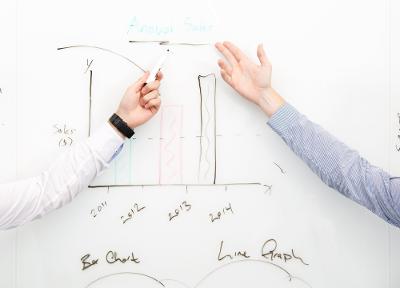 Annual Sales
y
Sales
($)
x
2011 2012 2013 2014
Bar Chart Line Graph